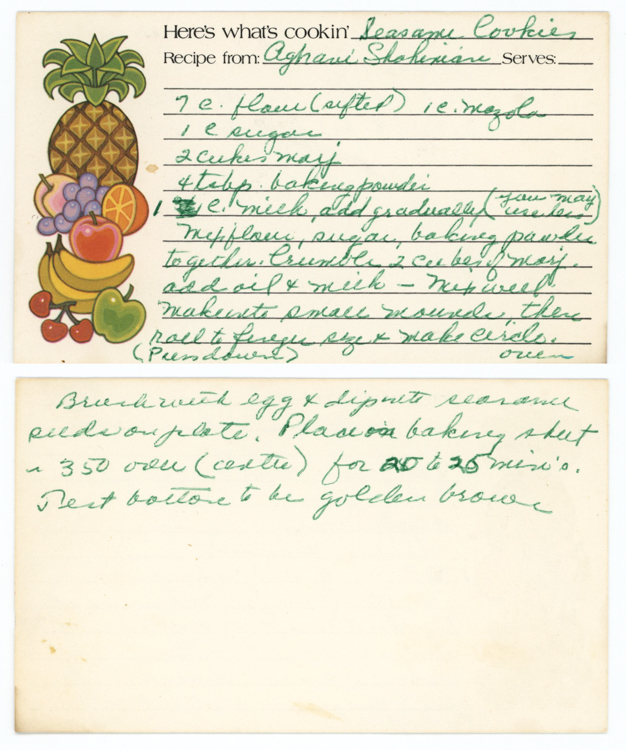 Here's what's cookin' Seasame Cookies
Recipe from: Aghavni Shahinian Serves:
7 c. flour (sifted) 1 c. mazola
1 c sugar
2 cubes marj
4 tsbp. baking powder
1 c. milk, add gradually (you may use less)
Mix flour, sugar, baking powder
together. Crumble 2 cubes of marj.
add oil & milk – Mix well.
Make into small mounds, then
roll to finger size & make circle.
(Press down) oven
Brush with egg & dip into seasame
seeds on plate. Place on baking sheet
350 oven (center) for 20 to 25 min's.
Test bottom to be golden brown